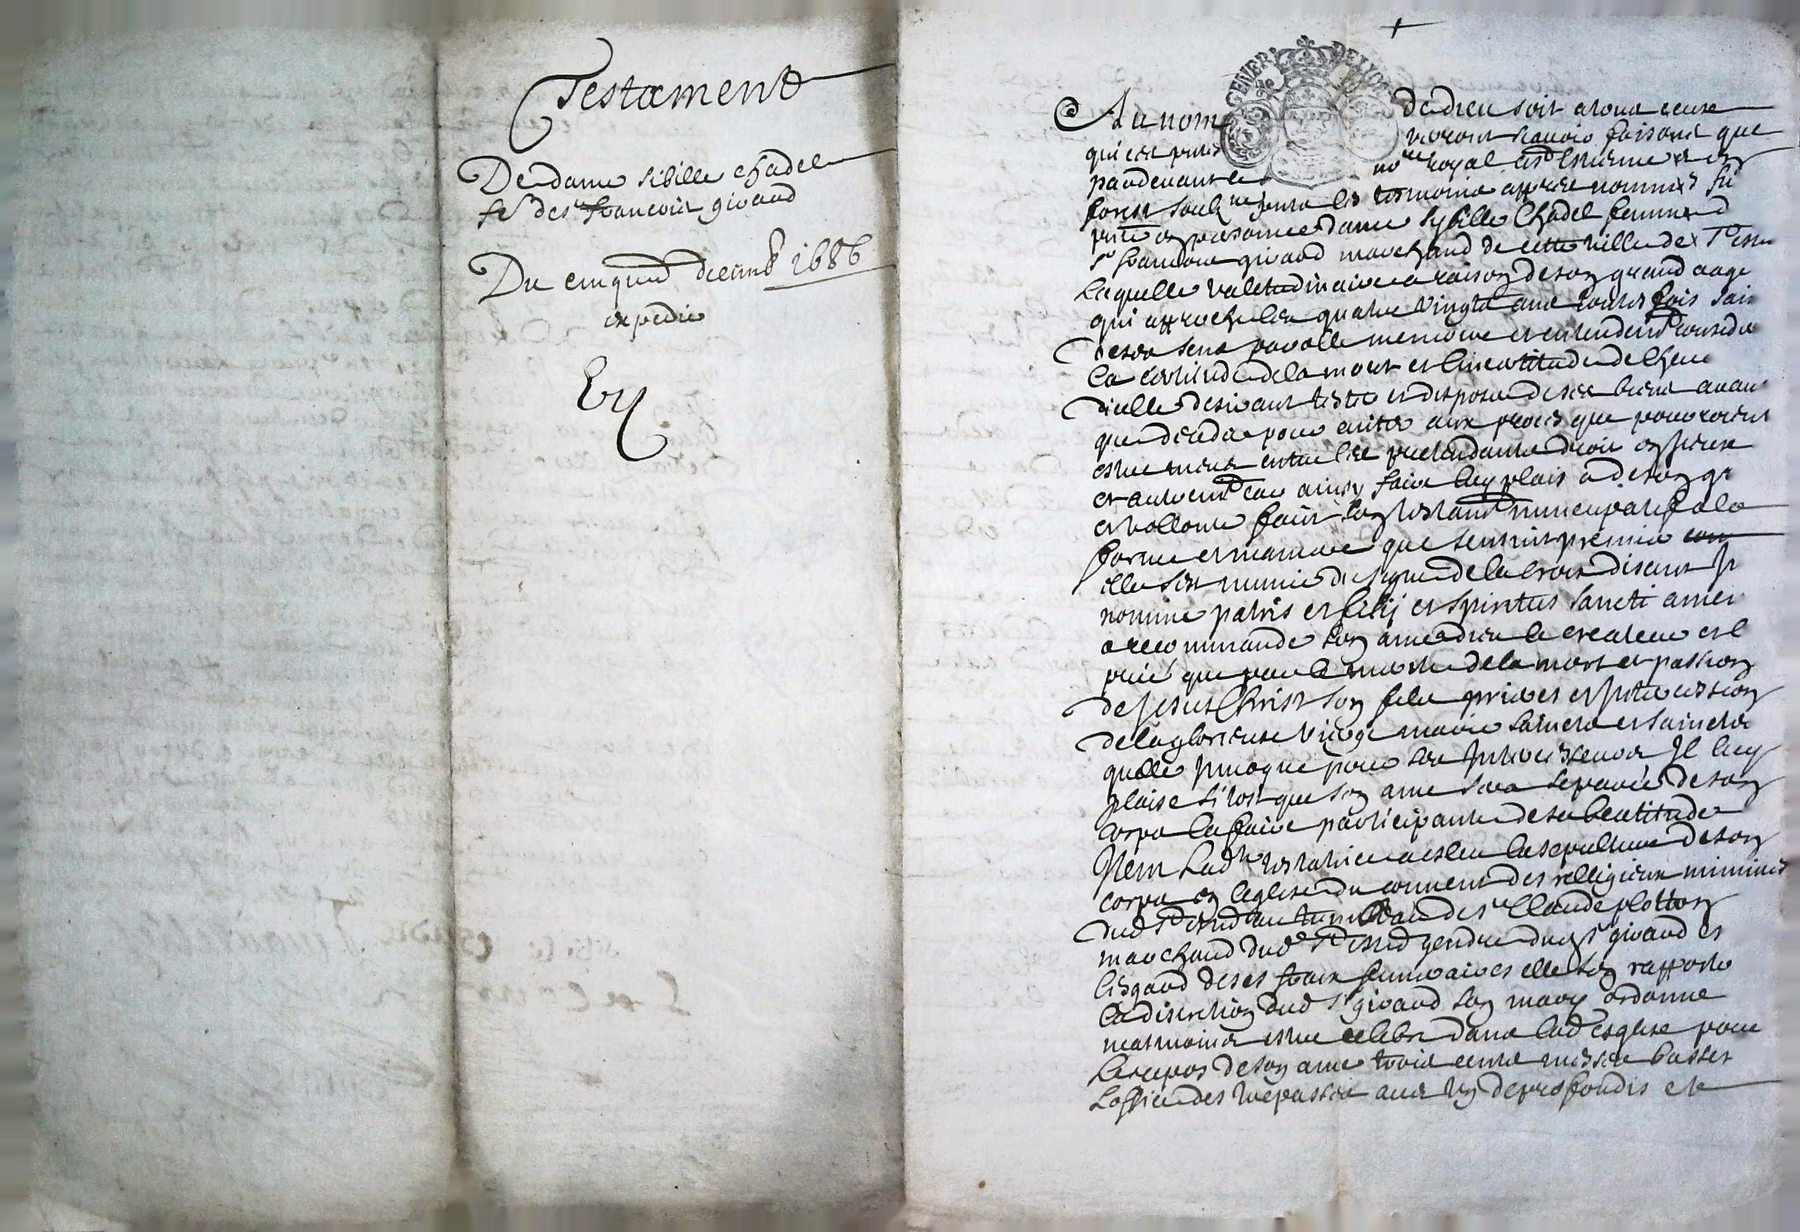 Testament
De dame sibille chadel
fe de sr francois giraud
Du cinquie decemb 1686
expedié
GENER DE LYON
Au nom de dieu soit a tous ceux
qui ces pntes verront scavoir faisons que
pardevant le nore royal a st Estienne en
forest soubne pnts les tesmoins appres nommes fut
pnte en personne dame sybille Chadel femme d
sr francois giraud marchand de cette ville de st Esne
Laquelle valetudinaire a raison de son grand aage
qui approche les quatre vingts ans toutes fois sain
de ses sens parolle memoire et entendemt conside
La certitude de la mort et lincertitude de lheure
dicelle desirant tester et disposer de ses biens avan
que deceder pour eviter aux proces que pourroient
estre meus entre les pretendants droit en iceux
et autremt car ainsy faire luy plait a de son gr
et vollonte fait son testamt nuncupatif a la
forme et maniere que sensuit premier
elle sest munie du signe de la Croix disant Jn
nomine patris et filij et spiritus sancti amen
a recommandé son ame a dieu le createur et l
prié que par le merite de la mort et passion
de Jesus Christ son fils prieres et Jntercession
de la glorieuse vierge marie saincts et sainctes
quelle Jnvoque pour ses Jntercesseurs Jl luy
plaise si tost que son ame sera separée de son
corps la faire participante de sa beatitude
Jtem Lade testatrice a esleu la sepulture de son
corps en leglise du couvent des relligieux minimes
dud st Estne au tumbeau de sr Claude plotton
marchand dud st Estne gendre dud sr giraud et
lesgard de ses fraix funeraires elle sen rapporte
La discretion dud sr giraud son mary ordonne
neatmoins estre celebre dans lad esglise pour
Le repos de son ame trois cents messes basses
Loffice des trepasses avec un de profondis et le